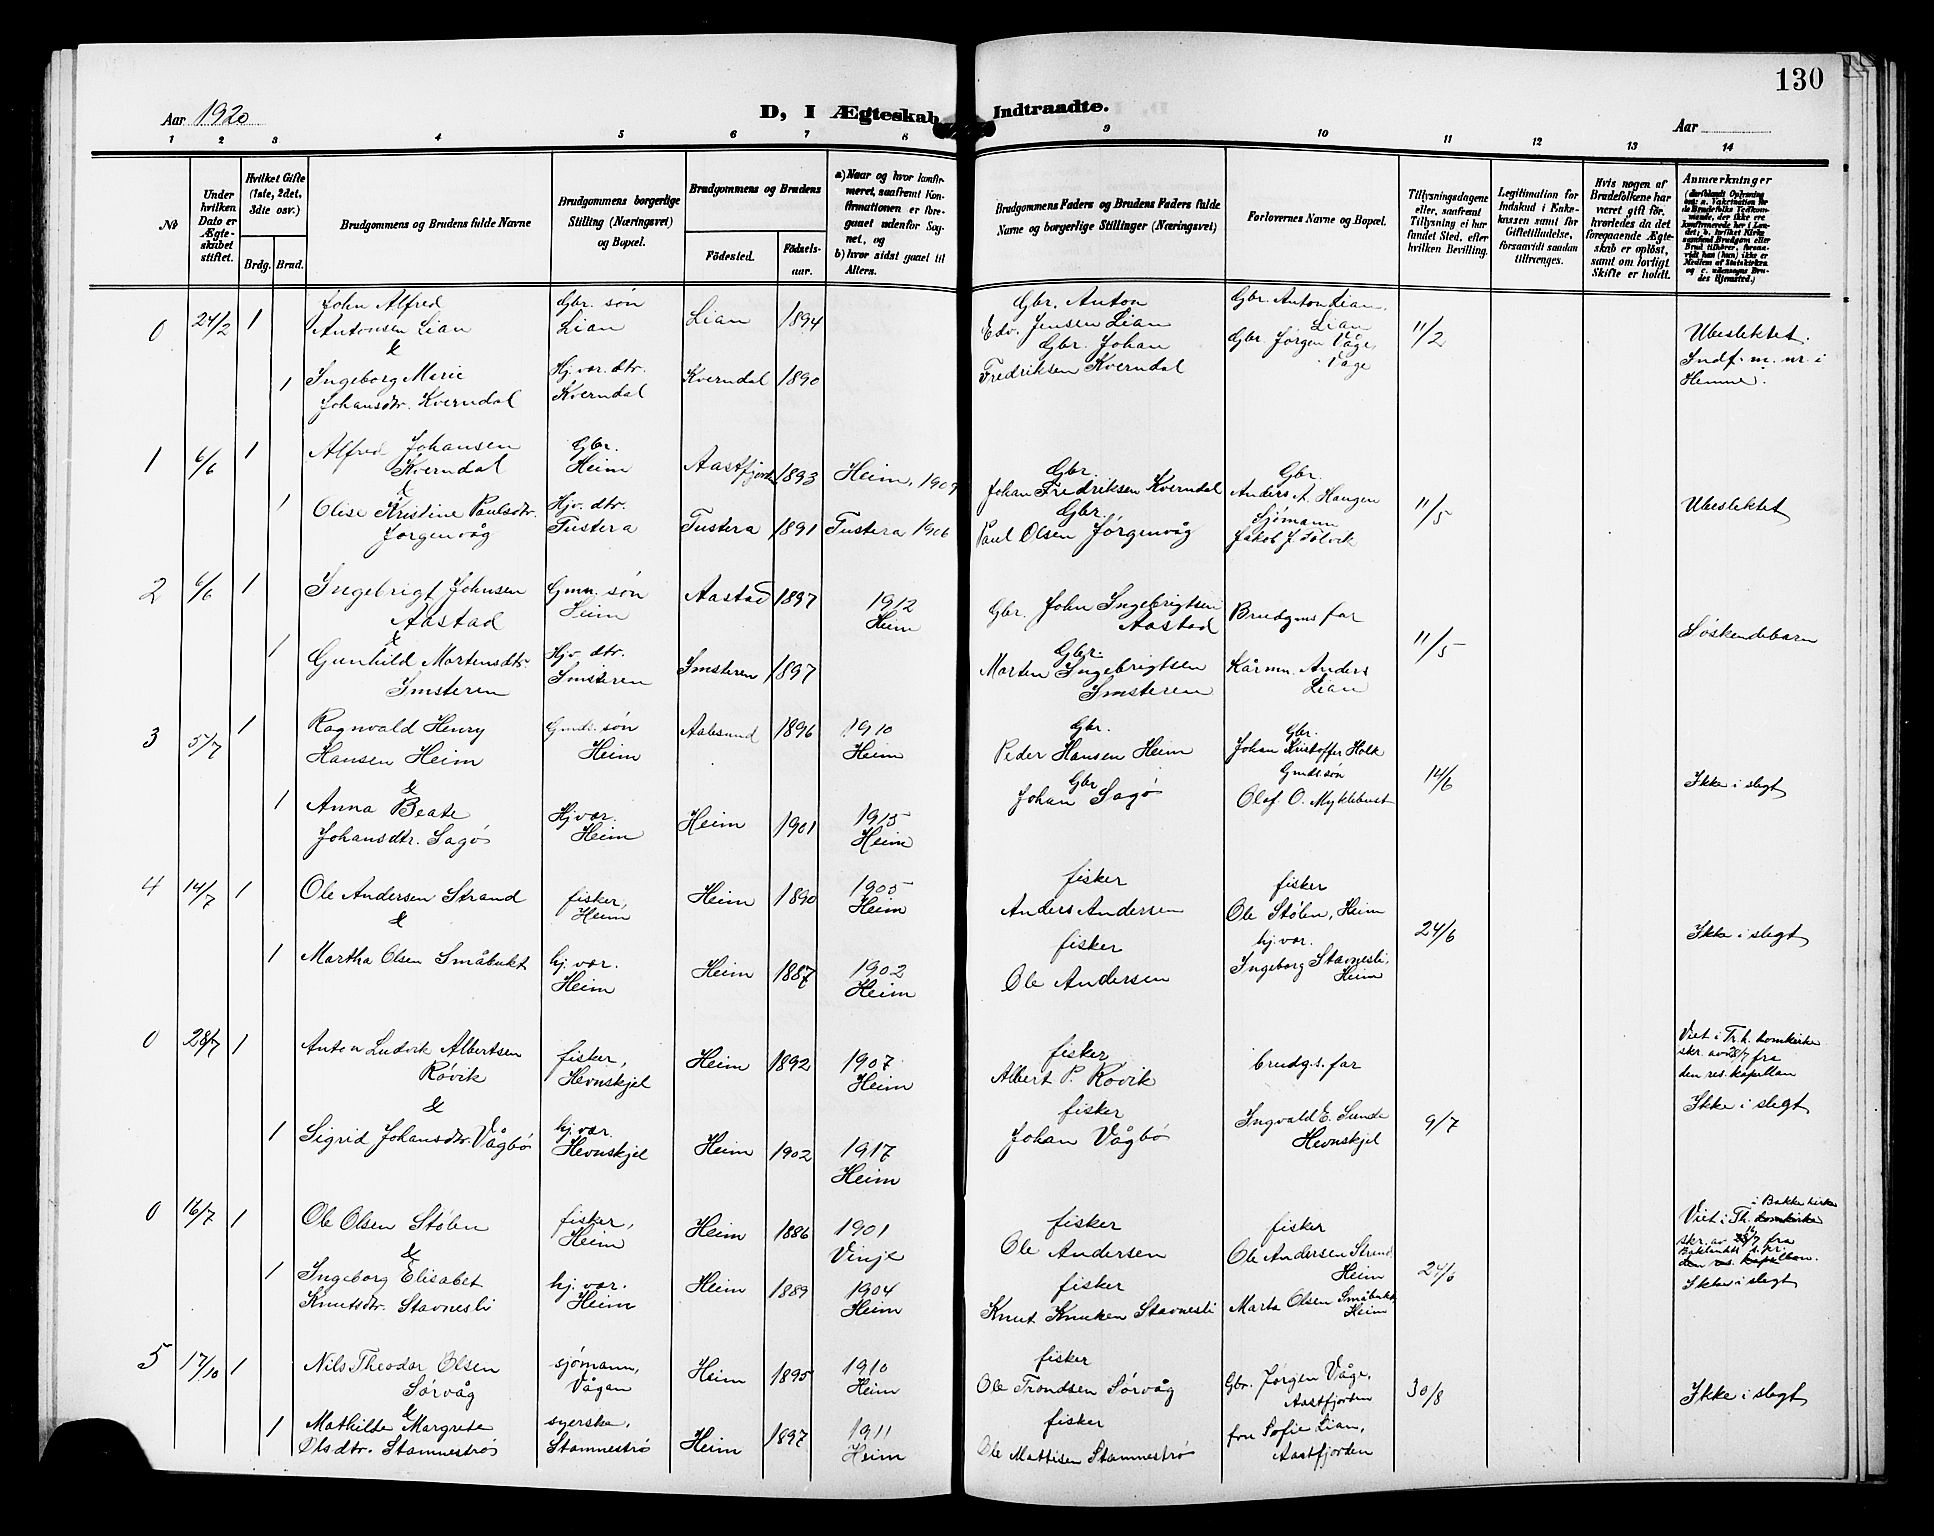 130
Aar 1920
D, I Ægteskab Indtraadte.
Aar
1 2 3 4 5 6 7 8 9 10 11 12 13 14
No
Under hvilken Dato er Ægteskabet stiftet.
Hvilket Gifte (1ste, 2det, 3die osv.)
Brdg. Brud.
Brudgommens og Brudens fulde Navne
Brudgommens og Brudens borgerlige Stilling (Næringsvei) og Bopæl.
Brudgommens og Brudens
Fødested.
Fødselsaar.
a) Naar og hvor konfirmeret, saafremt Konfirmationen er foregaaet udenfor Sognet, og
b) hvor sidst gaaet til Alters.
Brudgommens Faders og Brudens Faders fulde Navne og borgerlige Stillinger (Næringsvei)
Forlovernes Navne og Bopæl.
Tillysningsdagene eller, saafremt Tillysning ei har fundet Sted, efter hvilken Bevilling.
Legitimation for Indskud i Enkekassen samt for Giftetilladelse, forsaavidt saadan tiltrænges.
Hvis nogen af Brudefolkene har været gift før, hvorledes da det foregaaende Ægteskab er opløst, samt om lovligt Skifte er holdt.
Anmærkninger
0 24/2 1 John Alfred Antonsen Lian Gbr. søn Lian Lian 1894 Gbr. Anton Edv. Jensen Lian Gbr. Anton Lian, Lian 11/2 Ubeslektet. Indf. m. nr. i Hemne.
&
1 Ingeborg Marie Johansdtr. Kverndal Hj. var. dtr. Kverndal Kverndal 1890 Gbr. Johan Fredriksen Kverndal Gbr. Jørgen Våge, Våge
1 6/6 1 Alfred Johansen Kverndal Gbr. Heim Aastfjorden 1893 Heim, 1909 Gbr. Johan Fredriksen Kverndal Gbr. Anders A. Haugen 11/5 Ubeslektet
&
1 Olise Kristine Paulsdtr. Jørgenvåg Hjv. dtr. Tustera Tustera 1891 Tustera 1906 Gbr. Paul Olsen Jørgenvåg Sjømann Jakob J.
2 6/6 1 Ingebrigt Johnsen Aastad Gmn. søn Heim Aastad 1897 1912 Heim Gbr. John Ingebrigtsen Aastad Brudgms far 11/5 Søskendebarn
&
1 Gunhild Martensdtr. Imsteren Hjv. dtr. Imsteren Imsteren 1897 Gbr. Marten Ingebrigtsen Imsteren Kårmn. Anders Lian
3 5/7 1 Ragnvald Henry Hansen Heim Gmds. søn Heim Aalesund 1896 1910 Heim Gbr. Peder Hansen Heim Gbr. Johan Kristoffer Holk 14/6 Ikke i slegt
&
1 Anna Beate Johansdtr. Sagø Hj. var. Heim Heim 1901 1915 Heim Gbr Johan Sagø Gmds. søn Olaf O. Myklebust
4 14/7 1 Ole Andersen Strand fisker, Heim Heim 1890 1905 Heim fisker Anders Andersen fisker Ole Stølen, Heim 24/6 Ikke i slegt
&
1 Martha Olsen Småbukt hj. var. Heim Heim 1887 1902 Heim fisker Ole Andersen hj. var. Ingeborg Stavnesli, Heim
0 28/7 1 Anton Ludvik Albertsen Røvik fisker, Hevnskjel Heim 1892 1907 Heim fisker Albert P. Rovik brudg.s. far 9/7 Viet i Tr.h. domkirke skr. av 28/7 fra den res. kapellan
&
1 Sigrid Johansdtr. Vågbø hj. var. Hevnskjel Heim 1902 1917 Heim fisker Johan Vågbø Ingvald E. Sunde Hevnskjel Ikke i slegt
0 16/7 1 Ole Olsen Stølen fisker, Heim Heim 1886 1901 Vinje fisker Ole Andersen fisker Ole Andersen Strand Heim 24/6 Viet i Th. domkirke i Bakke kirke skr. av 16/7 fra Baklandets s.pr. den res. kapellan.
&
1 Ingeborg Elisabet Knutsdtr. Stavnesli hj. var. Heim Heim 1889 1904 Heim fisker Knut Knutsen Stavnesli Marta Olsen Småbukt, Heim Ikke i slegt
5 17/10 1 Nils Theodor Olsen Sørvåg sjømann, Vågan Heim 1895 1910 Heim fisker Ole Trondsen Sørvåg Gbr. Jørgen Våge, Aastfjorden 30/8 Ikke i slegt
&
1 Mathilde Margrete Olsdtr. Stamnestrø syerske, Stamnestrø Heim 1897 1911 Heim fisker Ole Mattisen Stamnestrø fru Sofie Lian, Aastfjorden